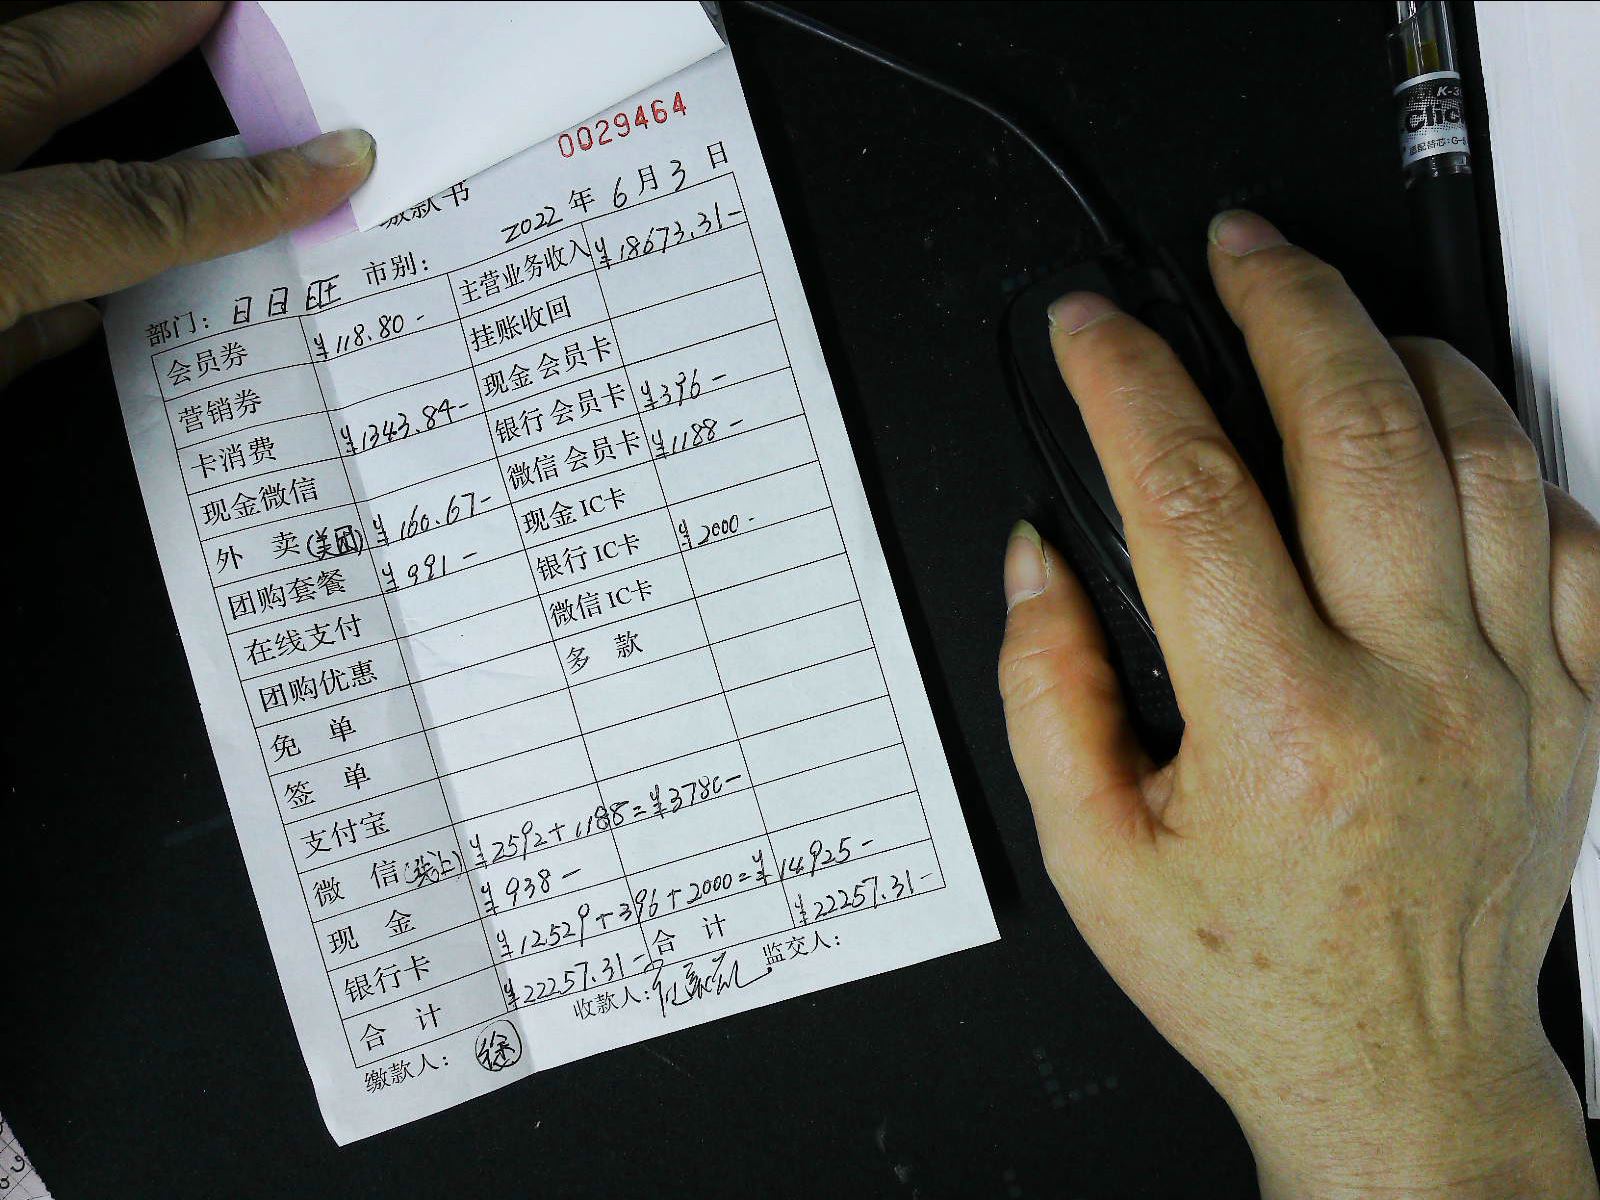 0029464
缴款书
2022年6月3日
部门：日日旺 市别：
会员券 ¥118.80- 主营业务收入 ¥18673.31-
营销券 挂账收回
卡消费 ¥1343.84- 现金会员卡
现金微信 银行会员卡 ¥396-
外 卖(美团) ¥160.67- 微信会员卡 ¥1188-
团购套餐 ¥991- 现金IC卡
在线支付 银行IC卡 ¥2000-
团购优惠 微信IC卡
免 单 多 款
签 单
支付宝
微 信(线上) ¥2592+1188=¥3780-
现 金 ¥938-
银行卡 ¥12529+396+2000=¥14925-
合 计 ¥22257.31- 合 计 ¥22257.31-
缴款人：徐 收款人： 监交人：
K-3
Click
适配替芯:G-